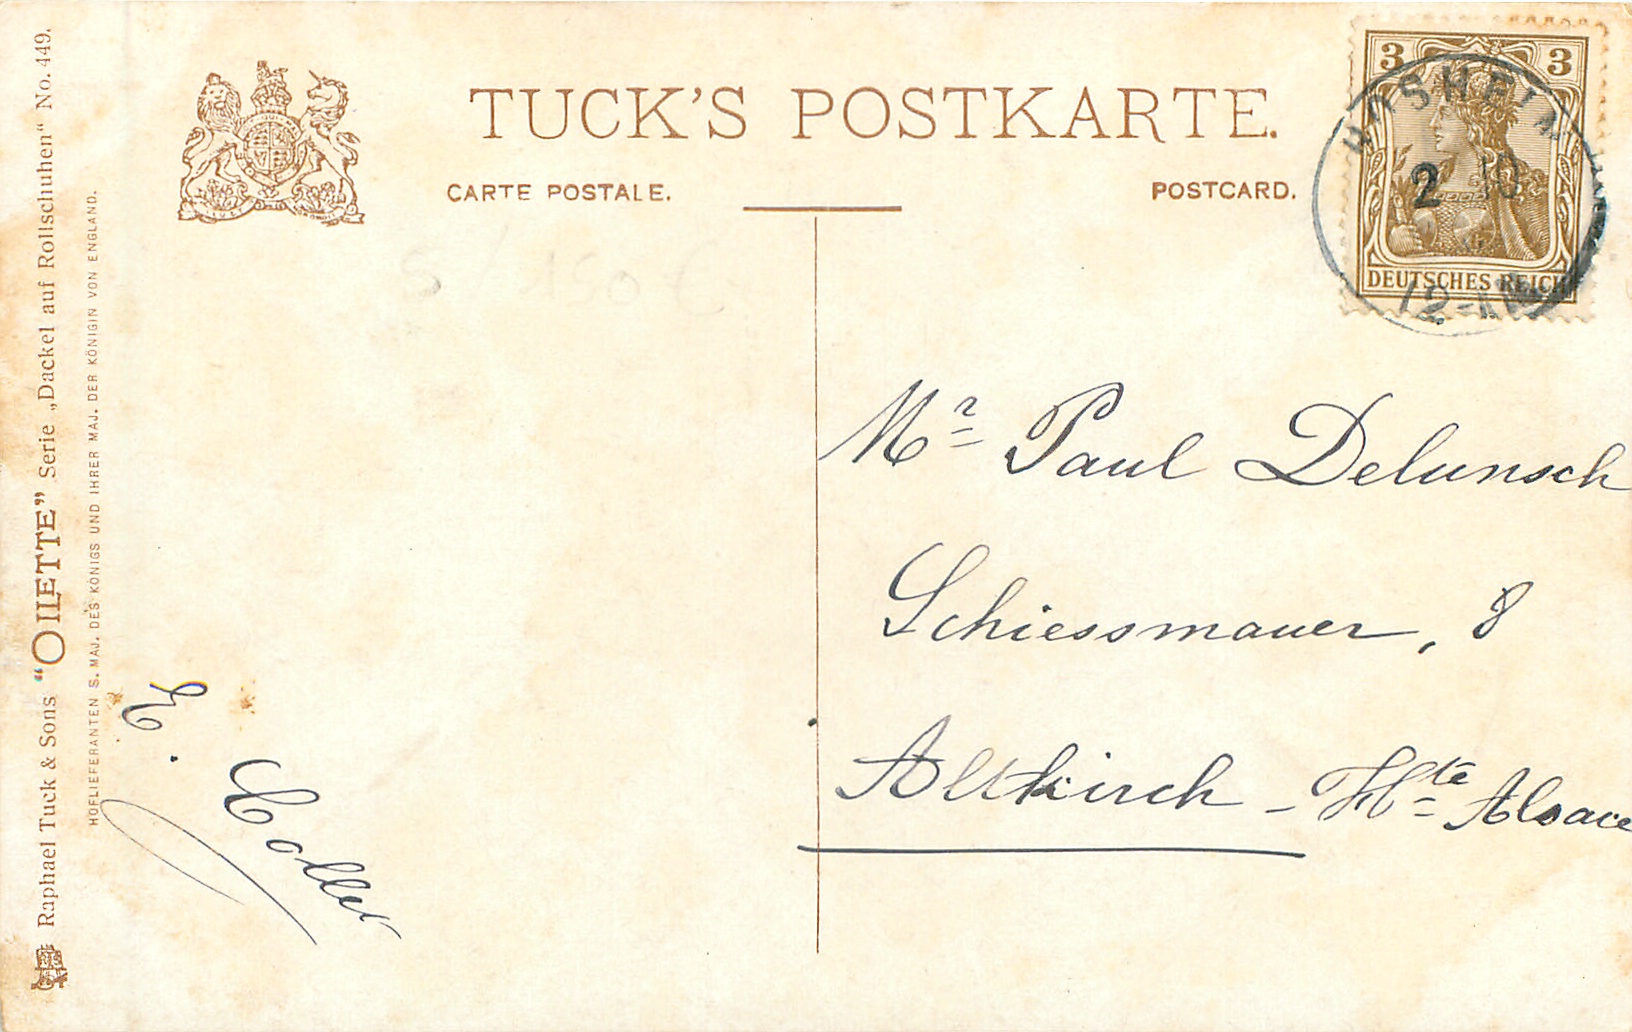 TUCK'S POSTKARTE.
CARTE POSTALE.
POSTCARD.
3 3
DEUTSCHES REICH
2 10
12-
S / 150 €
Mr Paul Delunsch
Schiessmauer, 8
Altkirch - Hte Alsace
E. Collet
Raphael Tuck & Sons "OILETTE" Serie „Dackel auf Rollschuhen" No. 449.
HOFLIEFERANTEN S. MAJ. DES KÖNIGS UND IHRER MAJ. DER KÖNIGIN VON ENGLAND.